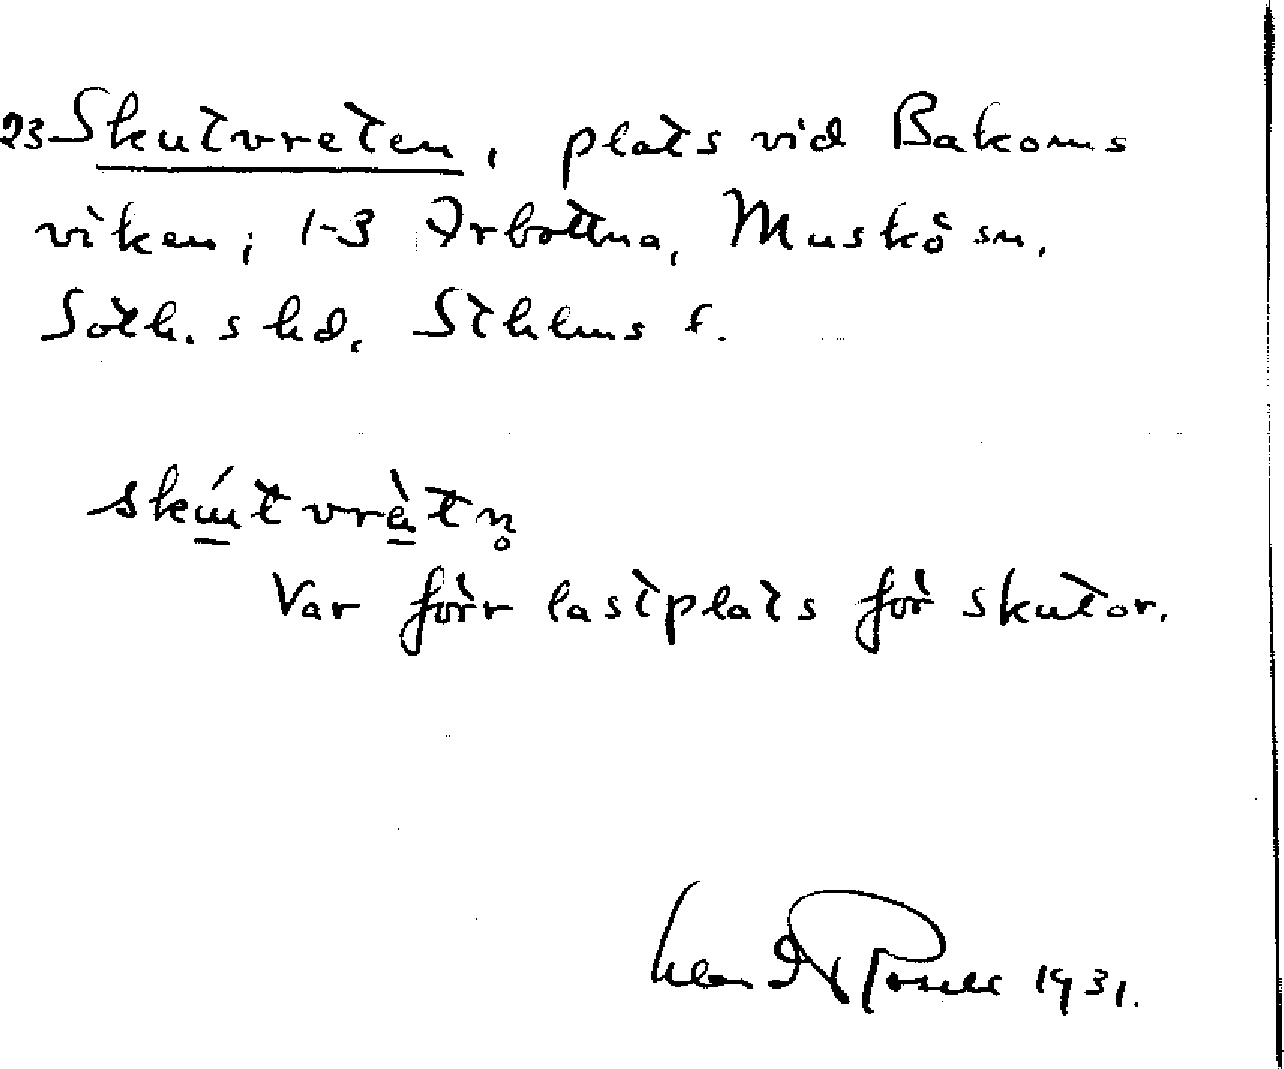 23 Skutvreten, plats vid Bakoms
viken; 1-3 Arbottna, Muskö sn.
Soth.s hd. Sthlms l.
skútvrètn̥
Var förr lastplats för skutor.
1931.